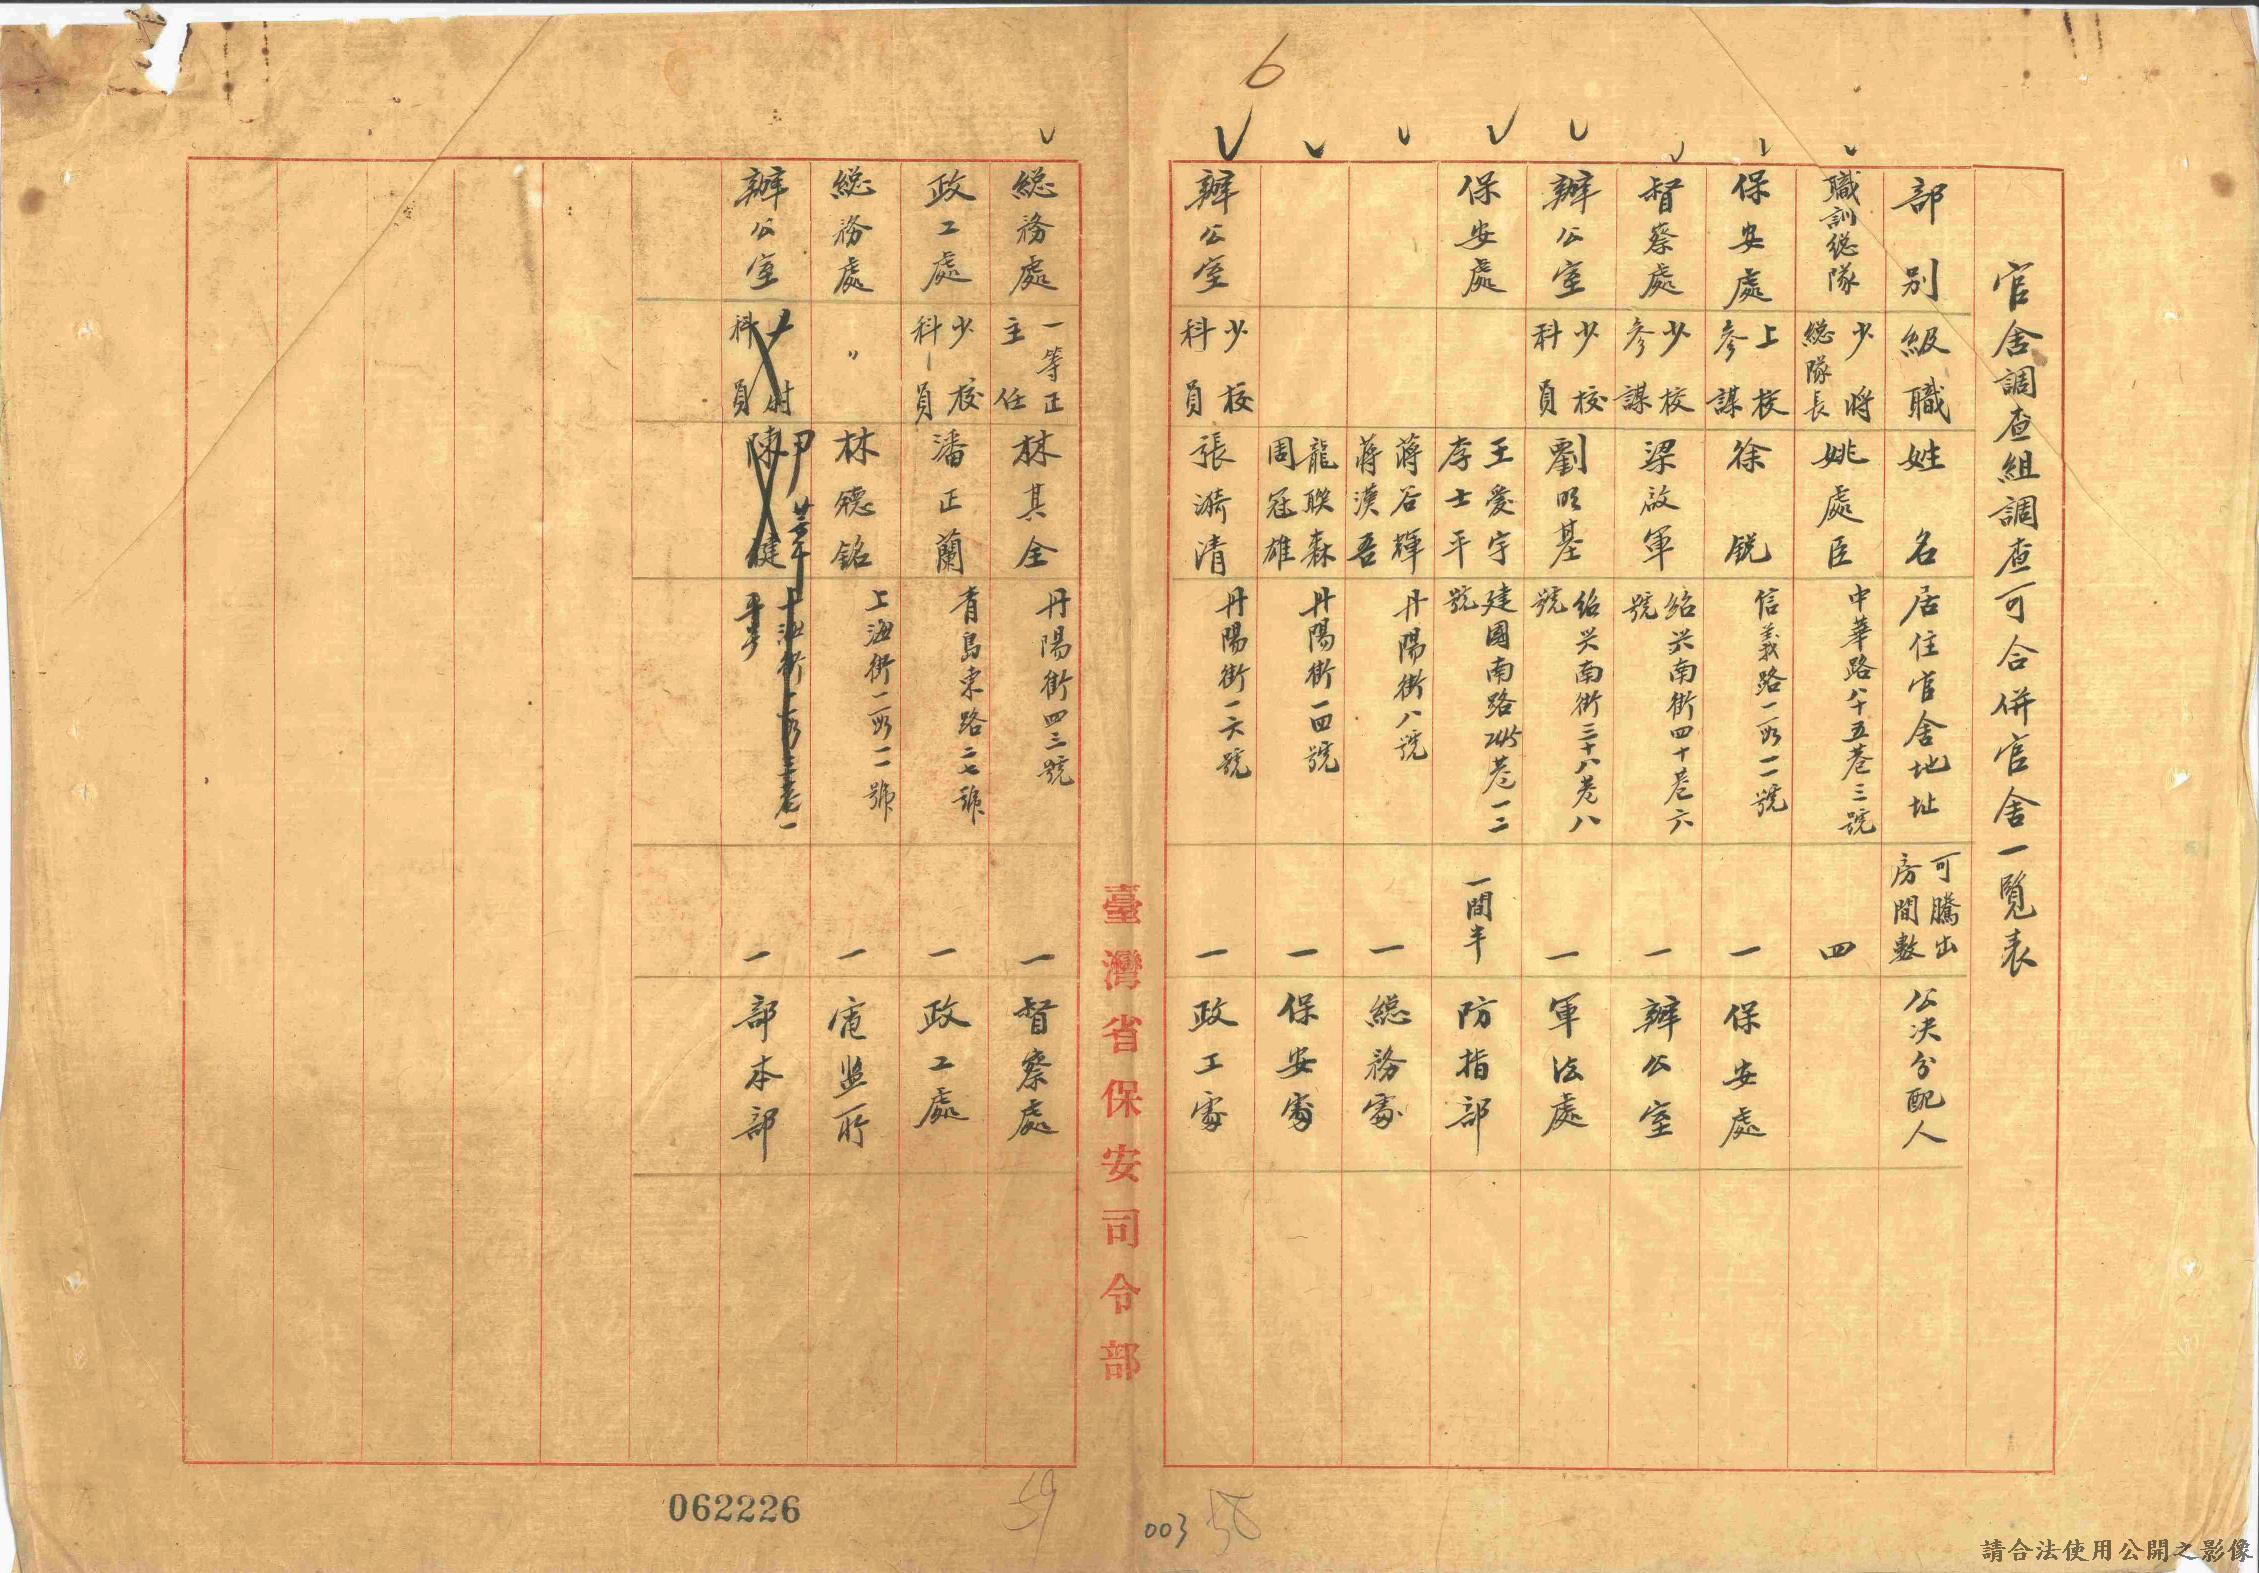 6
官舍調查組調查可合併官舍一覽表
部別 級職 姓名 居住官舍地址 可騰出房間數 公決分配人
職訓總隊 少將總隊長 姚處臣 中華路八十五巷三號 四
保安處 上校參謀 徐銳 信義路二段一一號 一 保安處
督察處 少校參謀 梁啟軍 紹兴南街四十巷六號 一 辦公室
辦公室 少校科員 劉明基 紹兴南街三十八巷八號 一 軍法處
保安處 王愛宇 李士平 建國南路245巷一二號 一間半 防指部
蔣谷輝 蔣漢吾 丹陽街八號 一 總務處
龍聯森 周冠雄 丹陽街一四號 一 保安處
辦公室 少校科員 張漪清 丹陽街一六號 一 政工處
臺灣省保安司令部
總務處 一等正主任 林其全 丹陽街四三號 一 督察處
政工處 少校科員 潘正蘭 青島東路二七號 一 政工處
總務處 〃 林德銘 上海街二段一一號 一 電監所
辦公室 科員 陳健 一 部本部
062226
59
003
58
請合法使用公開之影像